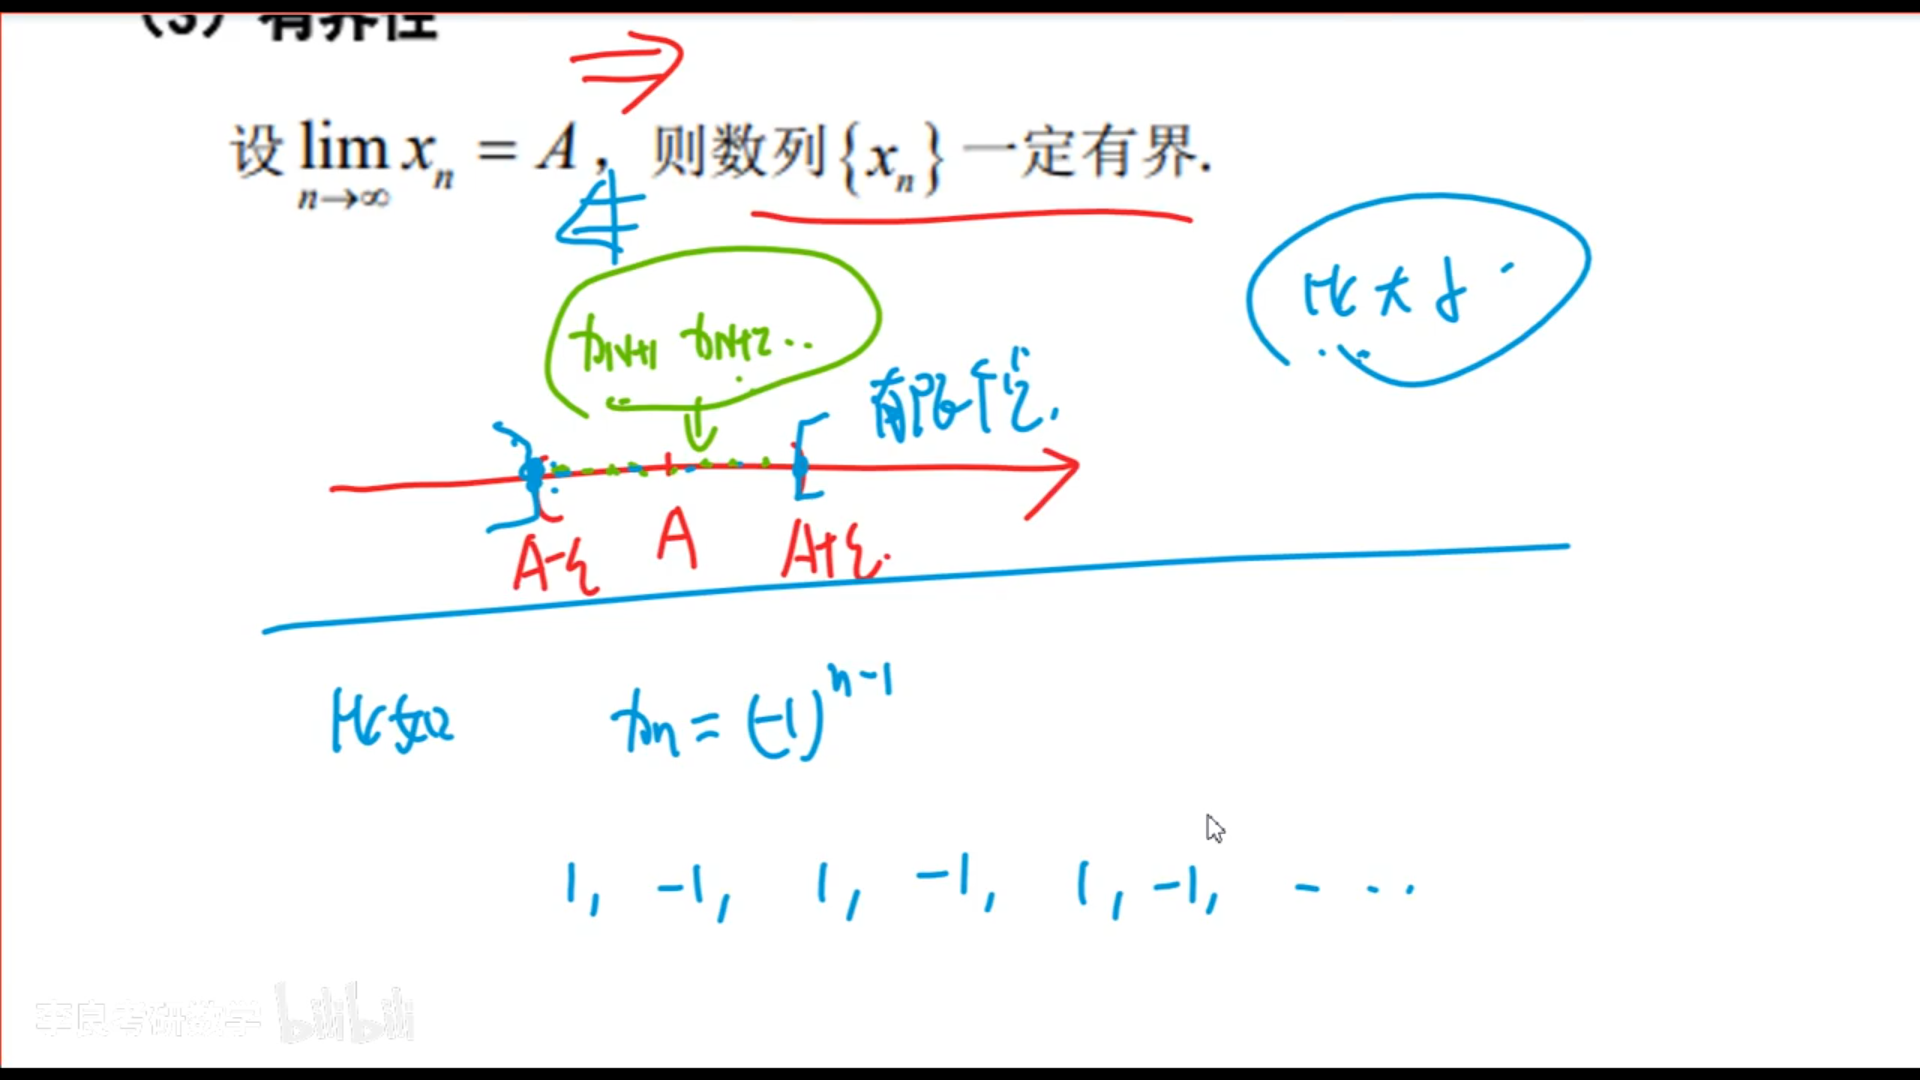 (3) 有界性
设 lim x_n = A, 则数列{x_n}一定有界.
n→∞
比大小
x_{N+1} x_{N+2}...
有限个点.
A-ε A A+ε
比如 x_n = (-1)^{n-1}
1, -1, 1, -1, 1, -1, - - ·
李良考研数学 bilibili